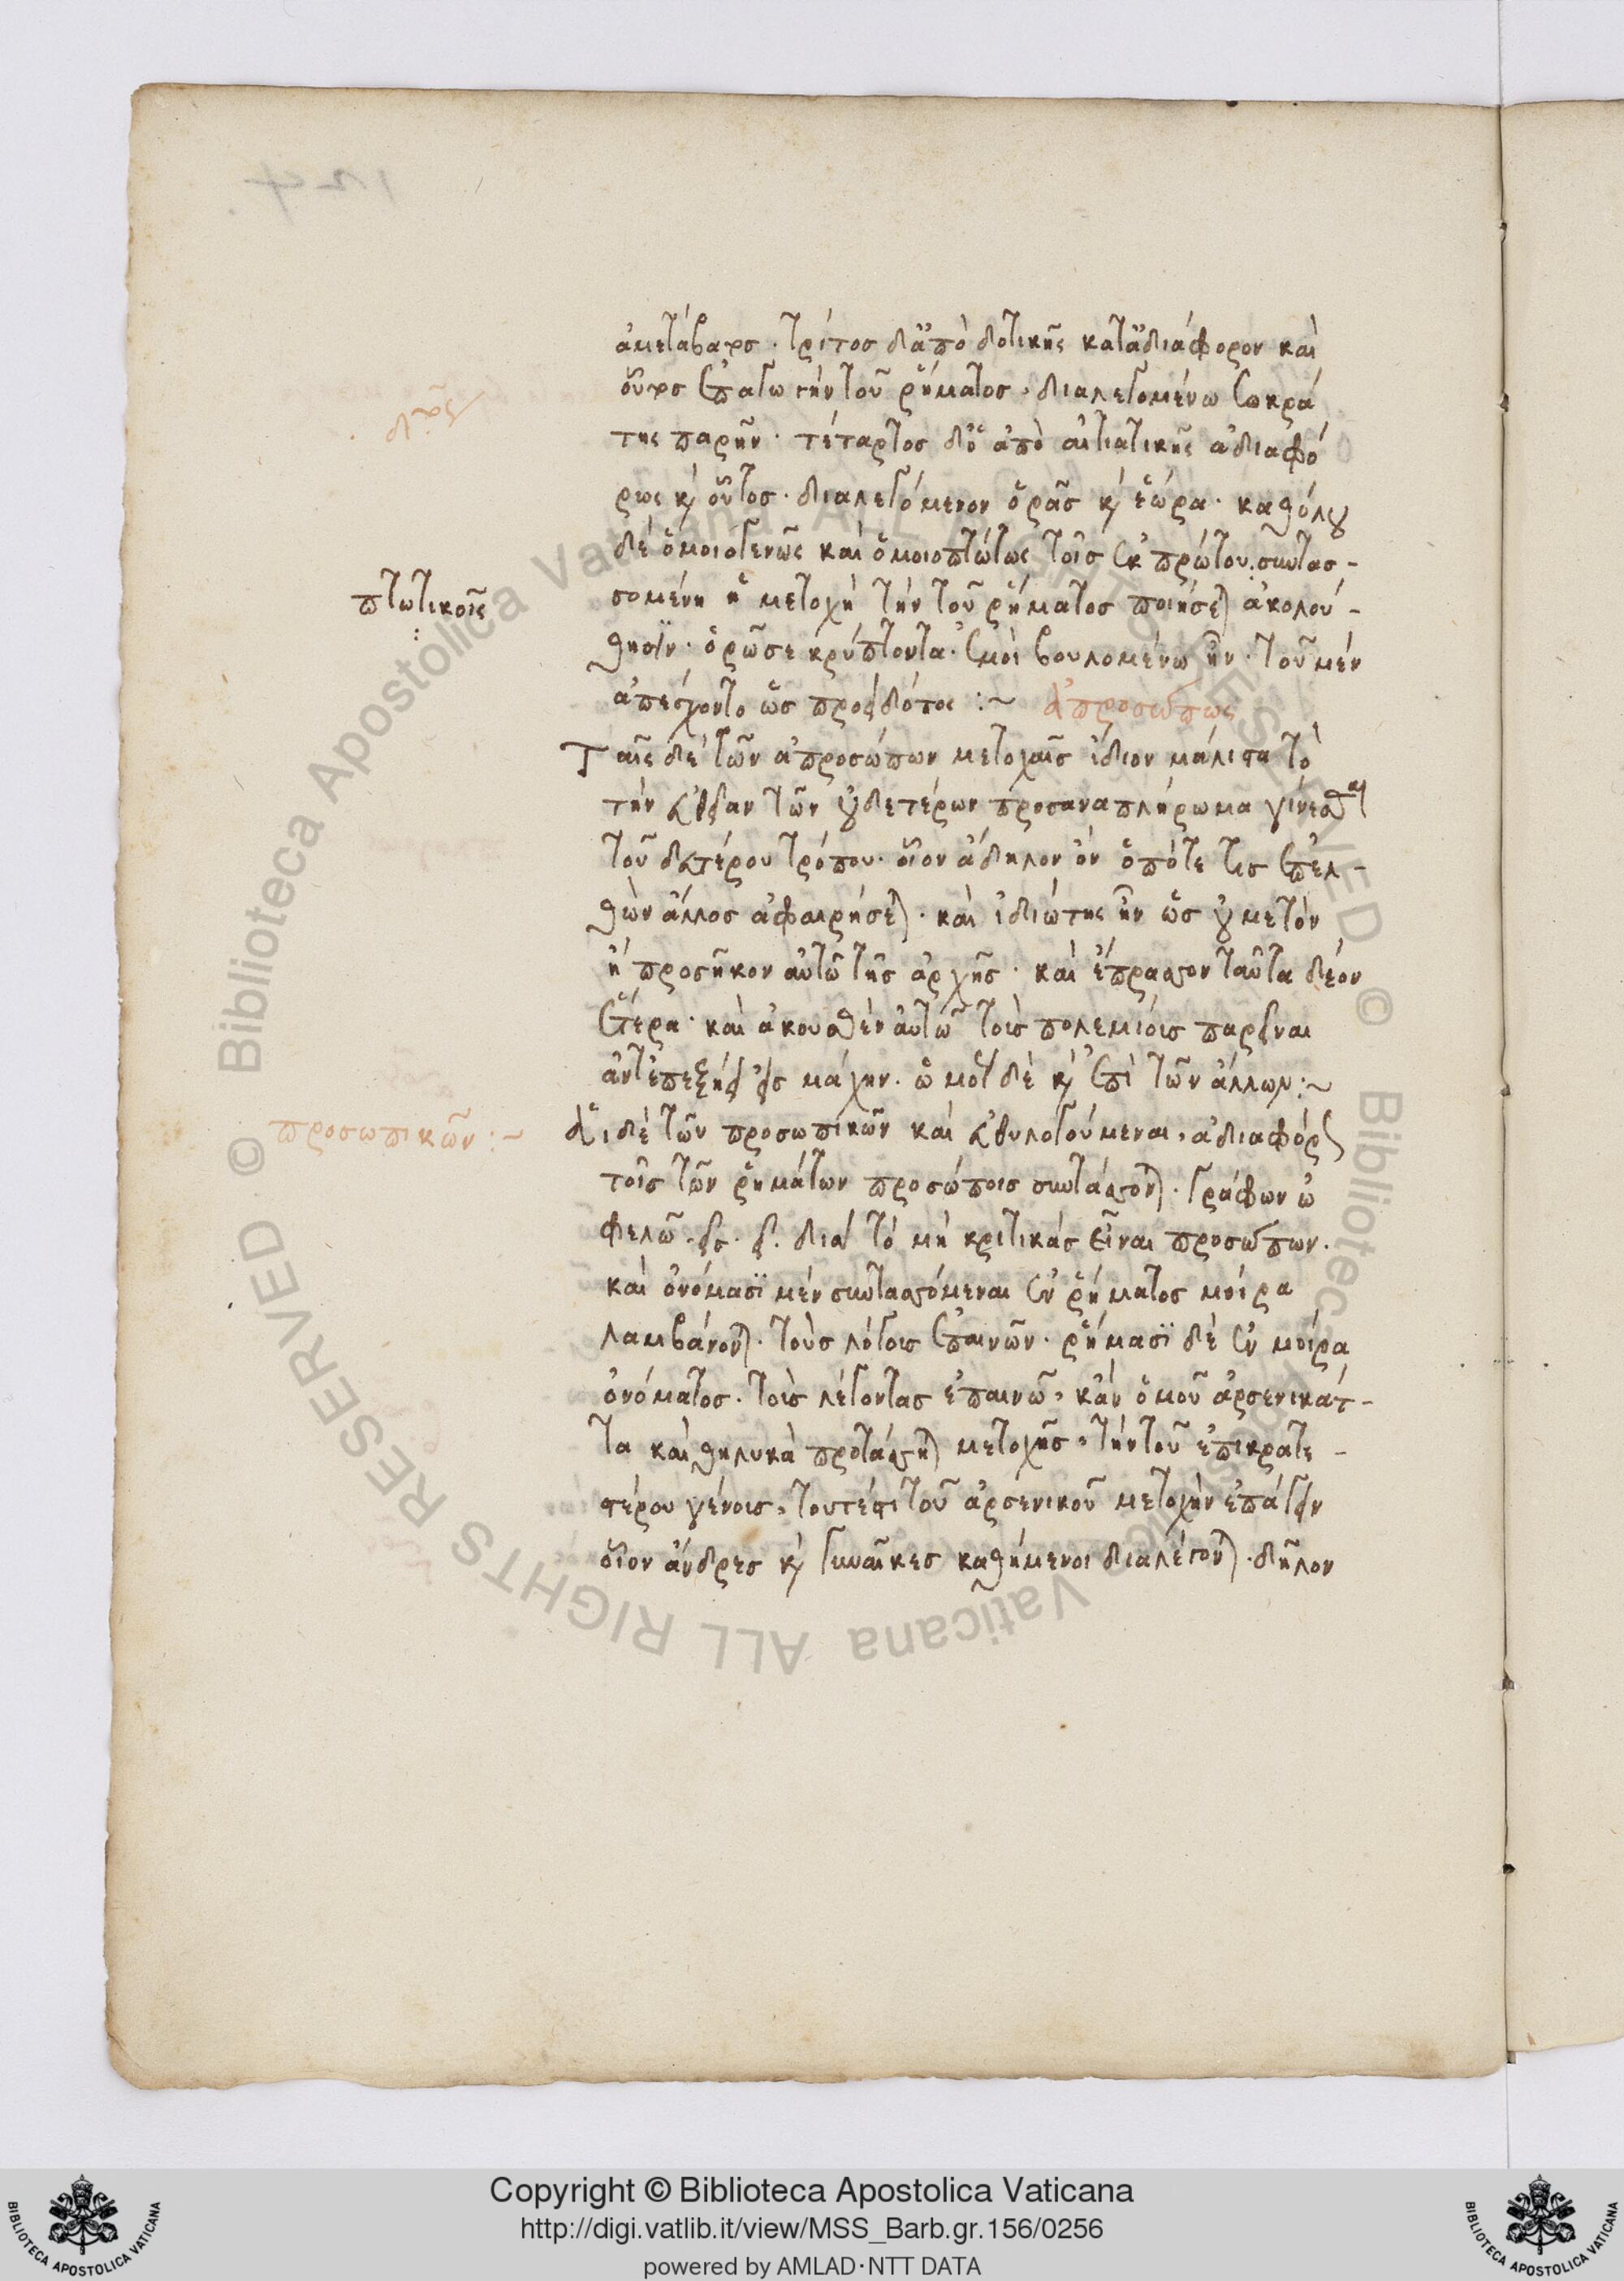 ἀμετάβατος. τρίτος δ' ἀπὸ δοτικῆς κατ' ἀδιάφορον καὶ
οὗτος ἐπάγων τὴν τοῦ ῥήματος. διαλεγομένω Σωκρά
της παρῆν. τέταρτος δὲ ἀπὸ αἰτιατικῆς ἀδιαφό
ρως κ οὗτος. διαλεγόμενον ὁρᾶς κ ἑώρα. καθόλου
δὲ ὁμοιογενῶς καὶ ὁμοιοπτώτως τοῖς ἐκ πρώτου συντασ-
πτωτικοῖς
σομένη ἡ μετοχὴ τὴν τοῦ ῥήματος ποιήσεται ἀκολού-
θησιν. ὁρῶ σε κρύπτοντα. ἐμοὶ βουλομένω ἦν. τοῦ μὲν
ἀπέσχοντο ὡς προσδότος :~ ἀπροσώπως
Ταῖς δὲ τῶν ἀπροσώπων μετοχαῖς ἴδιον μάλιστα τὸ
τὴν εὐθεῖαν τῶν οὐδετέρων προσαναπλήρωμα γίνεσθαι
τοῦ δευτέρου τρόπου. οἷον ἄδηλον ὂν ὁπότε τις ἐπελ-
θὼν ἄλλος ἀφαιρήσεται. καὶ ἰδιώτης ἦν ὡς οὐ μετὸν
ἢ προσῆκον αὐτῶ τῆς ἀρχῆς. καὶ ἔπραττον ταῦτα δέον
ἕτερα. καὶ ἀκουσθὲν αὐτῶ τοῖς πολεμίοις παρεῖναι
ἀντεπεξήει εἰς μάχην. ὁμοῦ δὲ κ ἐπὶ τῶν ἄλλων :~
προσωπικῶν :~
Αἱ δὲ τῶν προσωπικῶν καὶ εὐθυλογούμεναι, ἀδιαφόρως
τοῖς τῶν ῥημάτων προσώποις συντάττονται. γράφων ὠ
φελῶ. εις. ει. διὰ τὸ μὴ κριτικὰς εἶναι προσώπων.
καὶ ὀνόμασι μὲν συντασσόμεναι ἐν ῥήματος μοίρα
λαμβάνονται. τοὺς λόγους ἐπαινῶν. ῥήμασι δὲ ἐν μοίρα
ὀνόματος. τοὺς λέγοντας ἐπαινῶ, κἂν ὁμοῦ ἀρσενικάτ-
τα καὶ θηλυκὰ προτάττηται μετοχῆς, τὴν τοῦ ἐπικρατε-
στέρου γένους, τουτέστι τοῦ ἀρσενικοῦ μετοχὴν ἐπάγειν
οἷον ἄνδρες κ γυναῖκες καθήμενοι διαλέγονται. δῆλον
Copyright © Biblioteca Apostolica Vaticana
http://digi.vatlib.it/view/MSS_Barb.gr.156/0256
powered by AMLAD·NTT DATA
BIBLIOTECA APOSTOLICA VATICANA
BIBLIOTECA APOSTOLICA VATICANA
© Biblioteca Apostolica Vaticana ALL RIGHTS RESERVED © Biblioteca Apostolica Vaticana ALL RIGHTS RESERVED